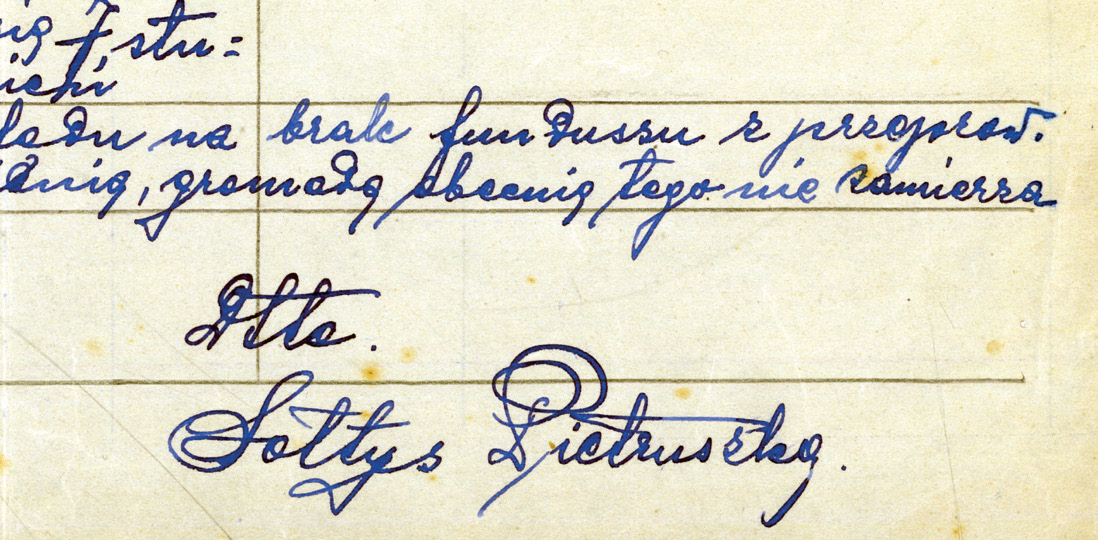 się 7 stu=
ichi
lędu na brak funduszu z przeprow.
enią, gromada obecnię tego nie zamierza
Dtto.
Sołtys Pietruszka.